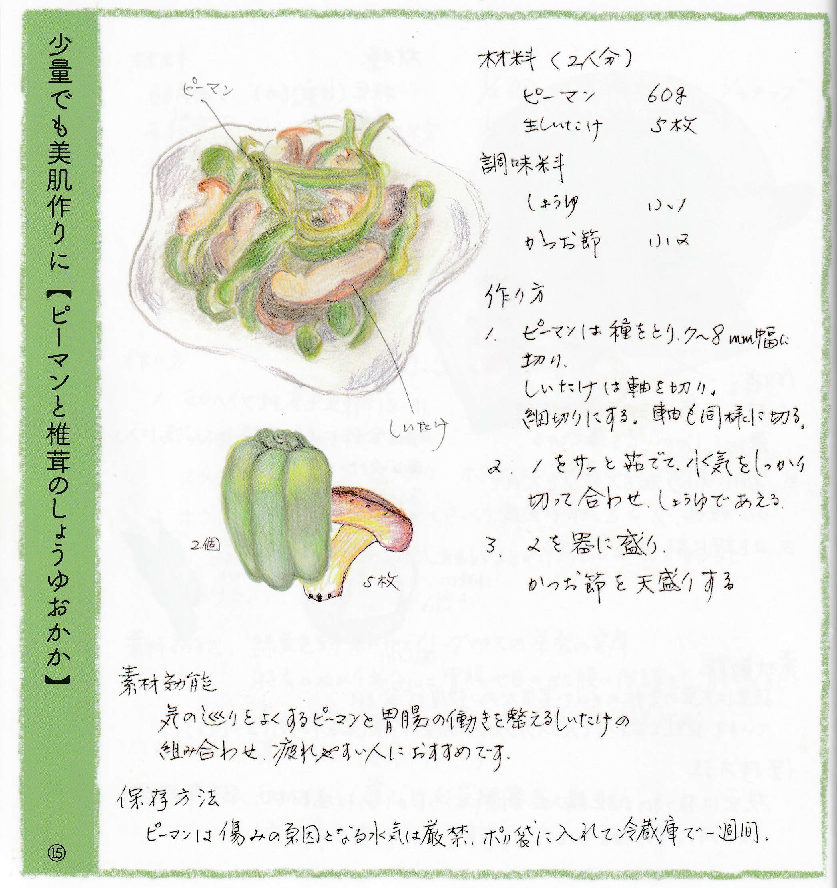 少量でも美肌作りに【ピーマンと椎茸のしょうゆおかか】
⑮
ピーマン
しいたけ
2個
5枚
材料(2人分)
ピーマン 60g
生しいたけ 5枚
調味料
しょうゆ 小1
かつお節 小2
作り方
1. ピーマンは種をとり、7〜8mm幅に
切り、
しいたけは軸を切り、
細切りにする。軸も同様に切る。
2. 1をサッと茹でて、水気をしっかり
切って合わせ、しょうゆであえる。
3. 2を器に盛り、
かつお節を天盛りする
素材効能
気の巡りをよくするピーマンと胃腸の働きを整えるしいたけの
組み合わせ、疲れやすい人におすすめです。
保存方法
ピーマンは傷みの原因となる水気は厳禁、ポリ袋に入れて冷蔵庫で一週間。